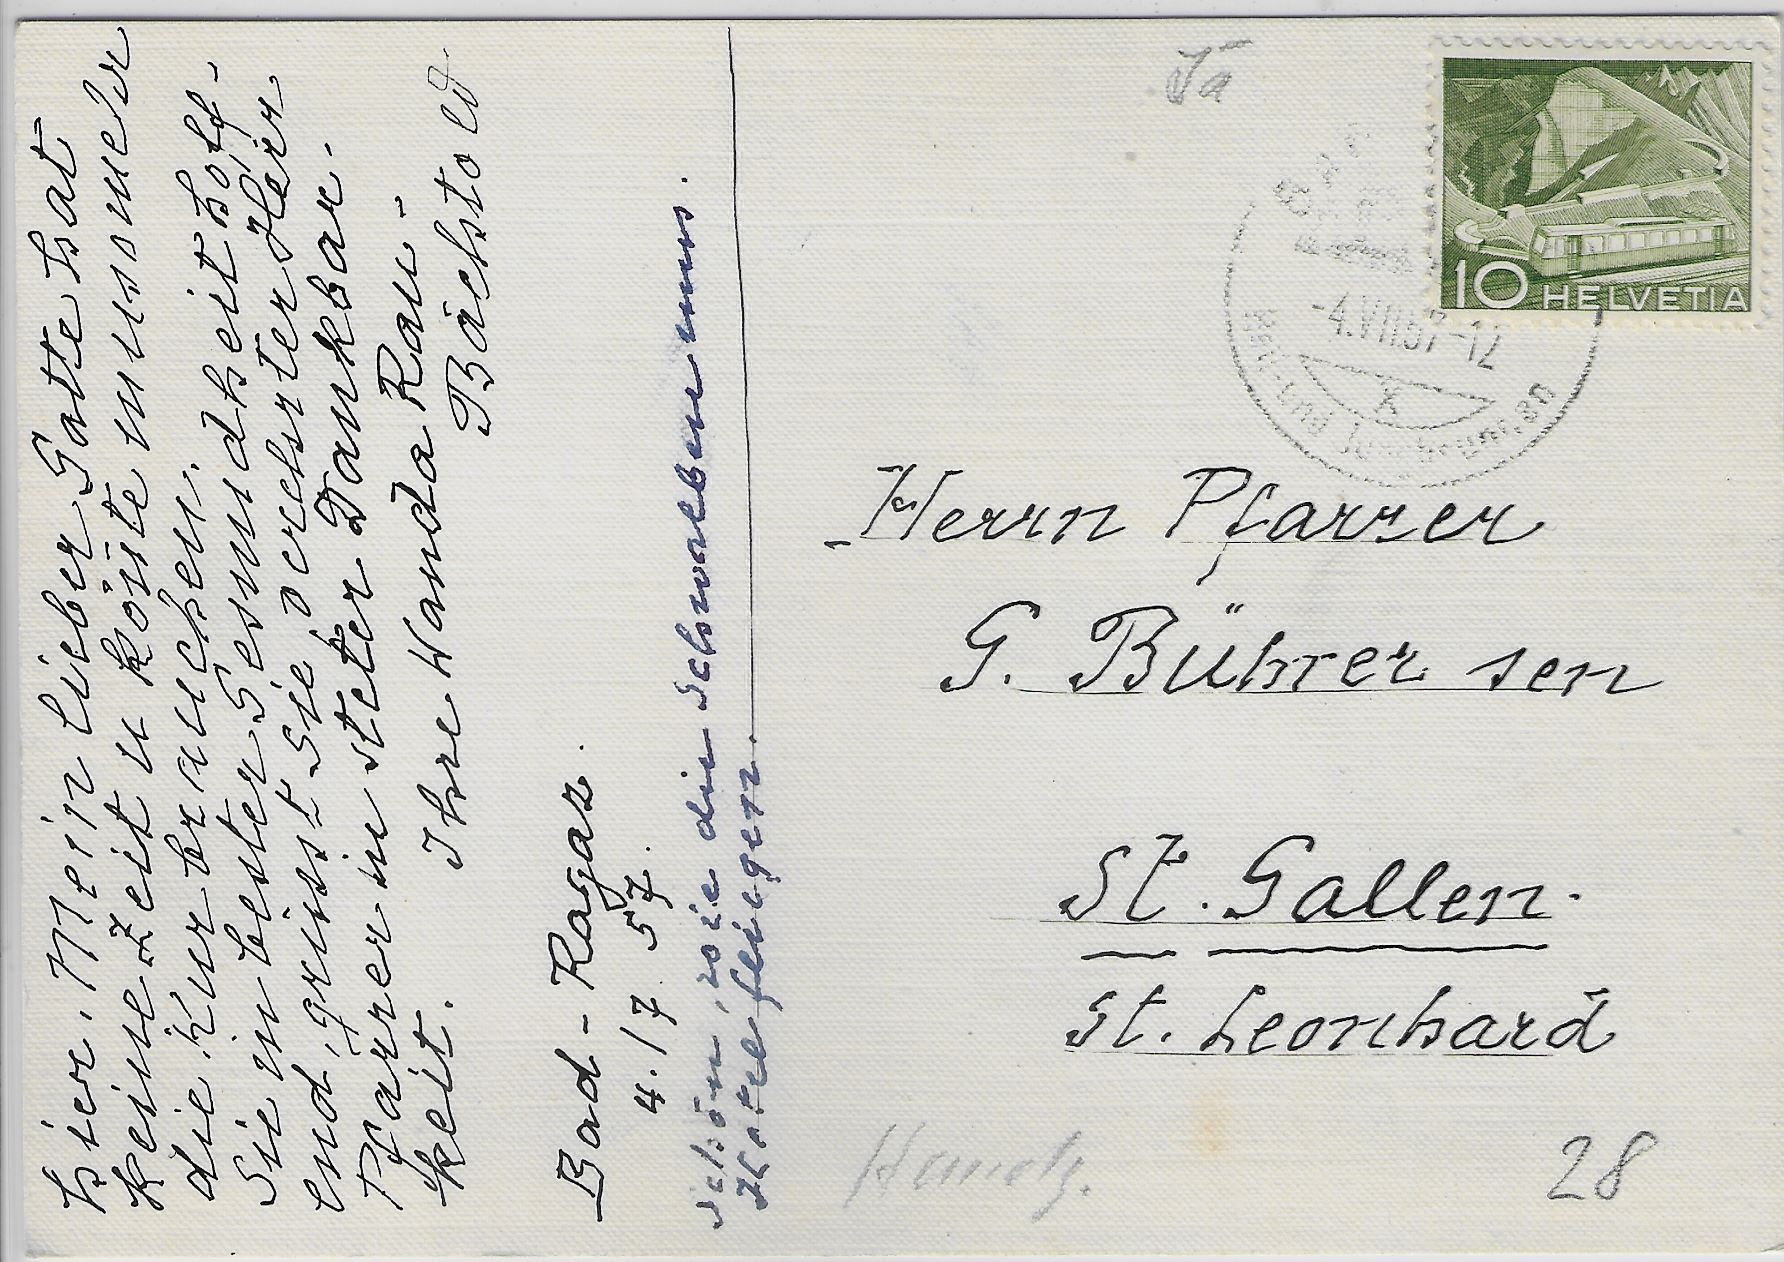 hier. Mein lieber Gatte hat
keine Zeit u könte nunsomehr
die Kur brauchen.
Sie in bester Gesundheit hoff-
end, grüsst Sie verehrter Herr
Pfarrer in steter Dankbar-
keit.
Ihre Wanda Rau-
Bächtold
Bad-Ragaz.
4./7.57.
schön, wie die Schwalben ums
Hotel fliegen.
10 HELVETIA
-4.VII.57-12
K
Herrn Pfarrer
G. Bührer sen
St. Gallen.
St. Leonhard
28